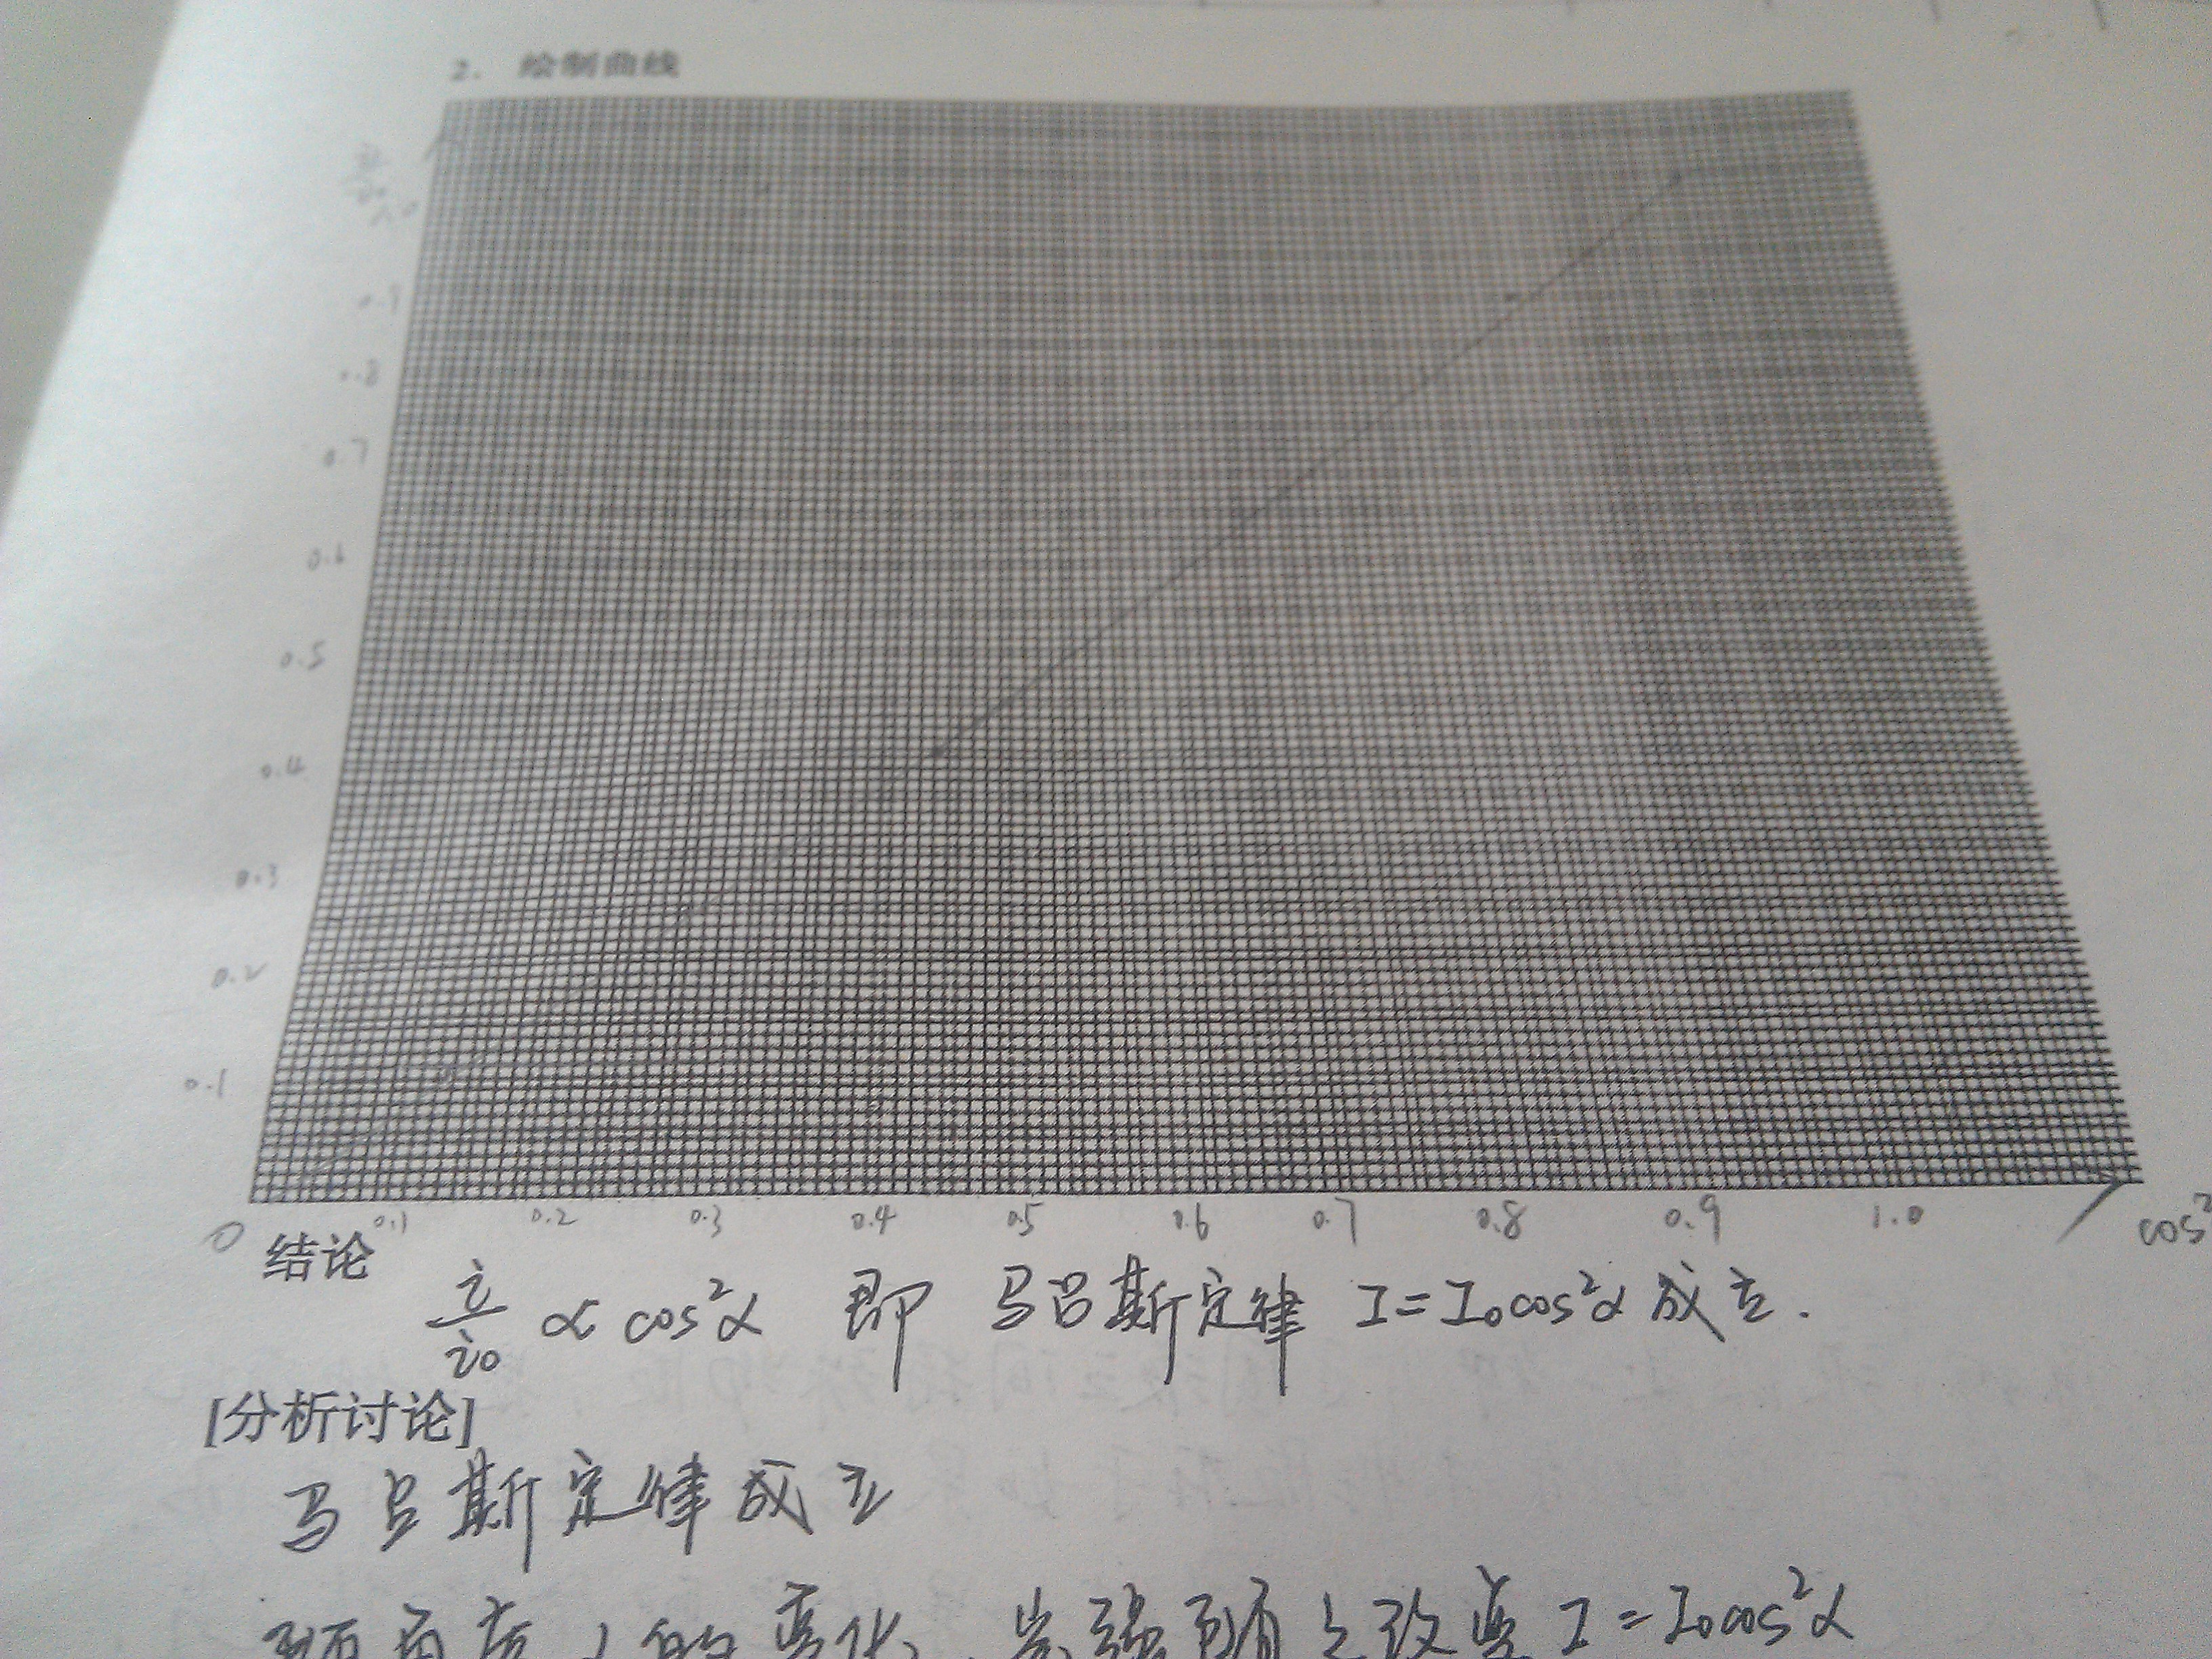 2. 绘制曲线
1.0
0.9
0.8
0.7
0.6
0.5
0.4
0.3
0.2
0.1
0 0.1 0.2 0.3 0.4 0.5 0.6 0.7 0.8 0.9 1.0 cos²
结论
i/i₀ ∝ cos²α 即 马吕斯定律 I=I₀cos²α 成立.
[分析讨论]
马吕斯定律成立
随角度α的变化,光强随之改变 I=I₀cos²α